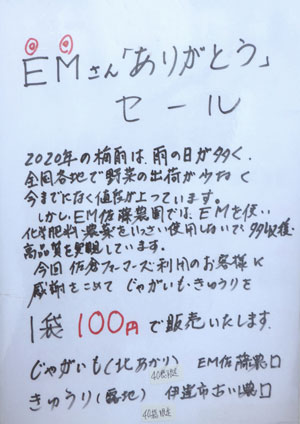 EMさん「ありがとう」
セール
2020年の梅雨は、雨の日が多く、
全国各地で野菜の出荷が少なく
今までになく値段が上っています。
しかし、EM佐藤農園では、EMを使い
化学肥料・農薬をいっさい使用しないで、多収穫・
高品質を実現しています。
今回佐倉ファーマーズ・利用のお客様に
感謝をこめて じゃがいも・きゅうりを
1袋 100円で販売いたします。
じゃがいも(北あかり) EM佐藤農園
40袋限定
きゅうり(露地) 伊達市 農園
40袋限定